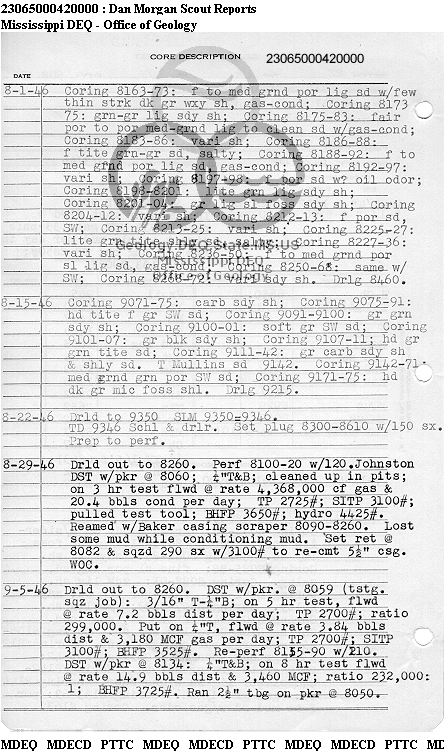 23065000420000 : Dan Morgan Scout Reports
Mississippi DEQ - Office of Geology
CORE DESCRIPTION 23065000420000
DATE
8-1-46 Coring 8163-73: f to med grnd por lig sd w/few
thin strk dk gr wxy sh, gas-cond; Coring 8173
75: grn-gr lig sdy sh; Coring 8175-83: fair
por to por med-grnd lig to clean sd w/gas-cond;
Coring 8183-86: vari sh; Coring 8186-88:
f tite grn-gr sd, salty; Coring 8188-92: f to
med grnd por lig sd, gas-cond; Coring 8192-97:
vari sh; Coring 8197-98: f por sd w? oil odor;
Coring 8198-8201: lite grn lig sdy sh;
Coring 8201-04: gr lig sl foss sdy sh; Coring
8204-12: vari sh; Coring 8212-13: f por sd,
SW; Coring 8213-25: vari sh; Coring 8225-27:
lite grn tite sd, salty; Coring 8227-36:
vari sh; Coring 8236-50: f to med grnd por
sl lig sd, gas-cond; Coring 8250-68: same w/
SW; Coring 8268-72: vari sdy sh. Drlg 8460.
Geology.DEQ.State.MS.US
Mississippi DEQ
Office of Geology
8-15-46 Coring 9071-75: carb sdy sh; Coring 9075-91:
hd tite f gr SW sd; Coring 9091-9100: gr grn
sdy sh; Coring 9100-01: soft gr SW sd; Coring
9101-07: gr blk sdy sh; Coring 9107-11; hd gr
grn tite sd; Coring 9111-42: gr carb sdy sh
& shly sd. T Mullins sd 9142. Coring 9142-71:
med grnd grn por SW sd; Coring 9171-75: hd
dk gr mic foss shl. Drlg 9215.
8-22-46 Drld to 9350 SLM 9350-9346.
TD 9346 Schl & drlr. Set plug 8300-8610 w/150 sx.
Prep to perf.
8-29-46 Drld out to 8260. Perf 8100-20 w/120. Johnston
DST w/pkr @ 8060; ¼"T&B; cleaned up in pits;
on 3 hr test flwd @ rate 4,368,000 cf gas &
20.4 bbls cond per day; TP 2725#; SITP 3100#;
pulled test tool; BHFP 3650#; hydro 4425#.
Reamed w/Baker casing scraper 8090-8260. Lost
some mud while conditioning mud. Set ret @
8082 & sqzd 290 sx w/3100# to re-cmt 5½" csg.
WOC.
9-5-46 Drld out to 8260. DST w/pkr. @ 8059 (tstg.
sqz job): 3/16" T-¼"B; on 5 hr test, flwd
@ rate 7.2 bbls dist per day; TP 2700#; ratio
299,000. Put on ¼"T, flwd @ rate 3.84 bbls
dist & 3,180 MCF gas per day; TP 2700#; SITP
3100#; BHFP 3525#. Re-perf 8155-90 w/210.
DST w/pkr @ 8134: ¼"T&B; on 8 hr test flwd
@ rate 14.9 bbls dist & 3,460 MCF; ratio 232,000:
1; BHFP 3725#. Ran 2½" tbg on pkr @ 8050.
MDEQ MDECD PTTC MDEQ MDECD PTTC MDEQ MDECD PTTC MD